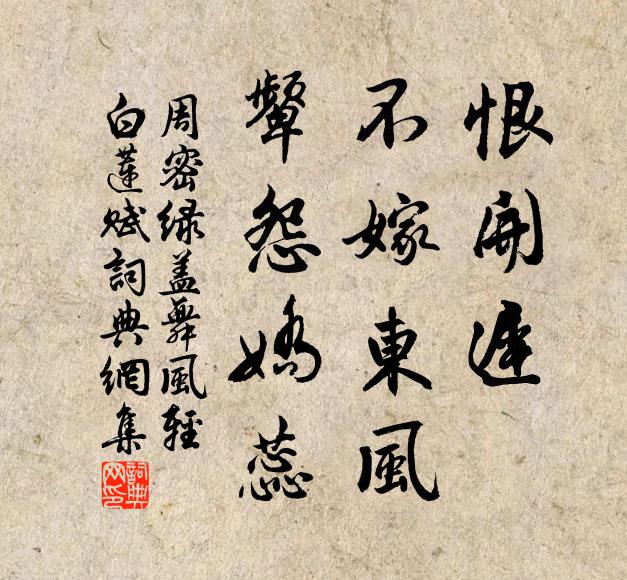 恨開遲
不嫁東風
顰怨嬌蕊
周密綠蓋舞風輕
白蓮賦詞典網集
詞典网印